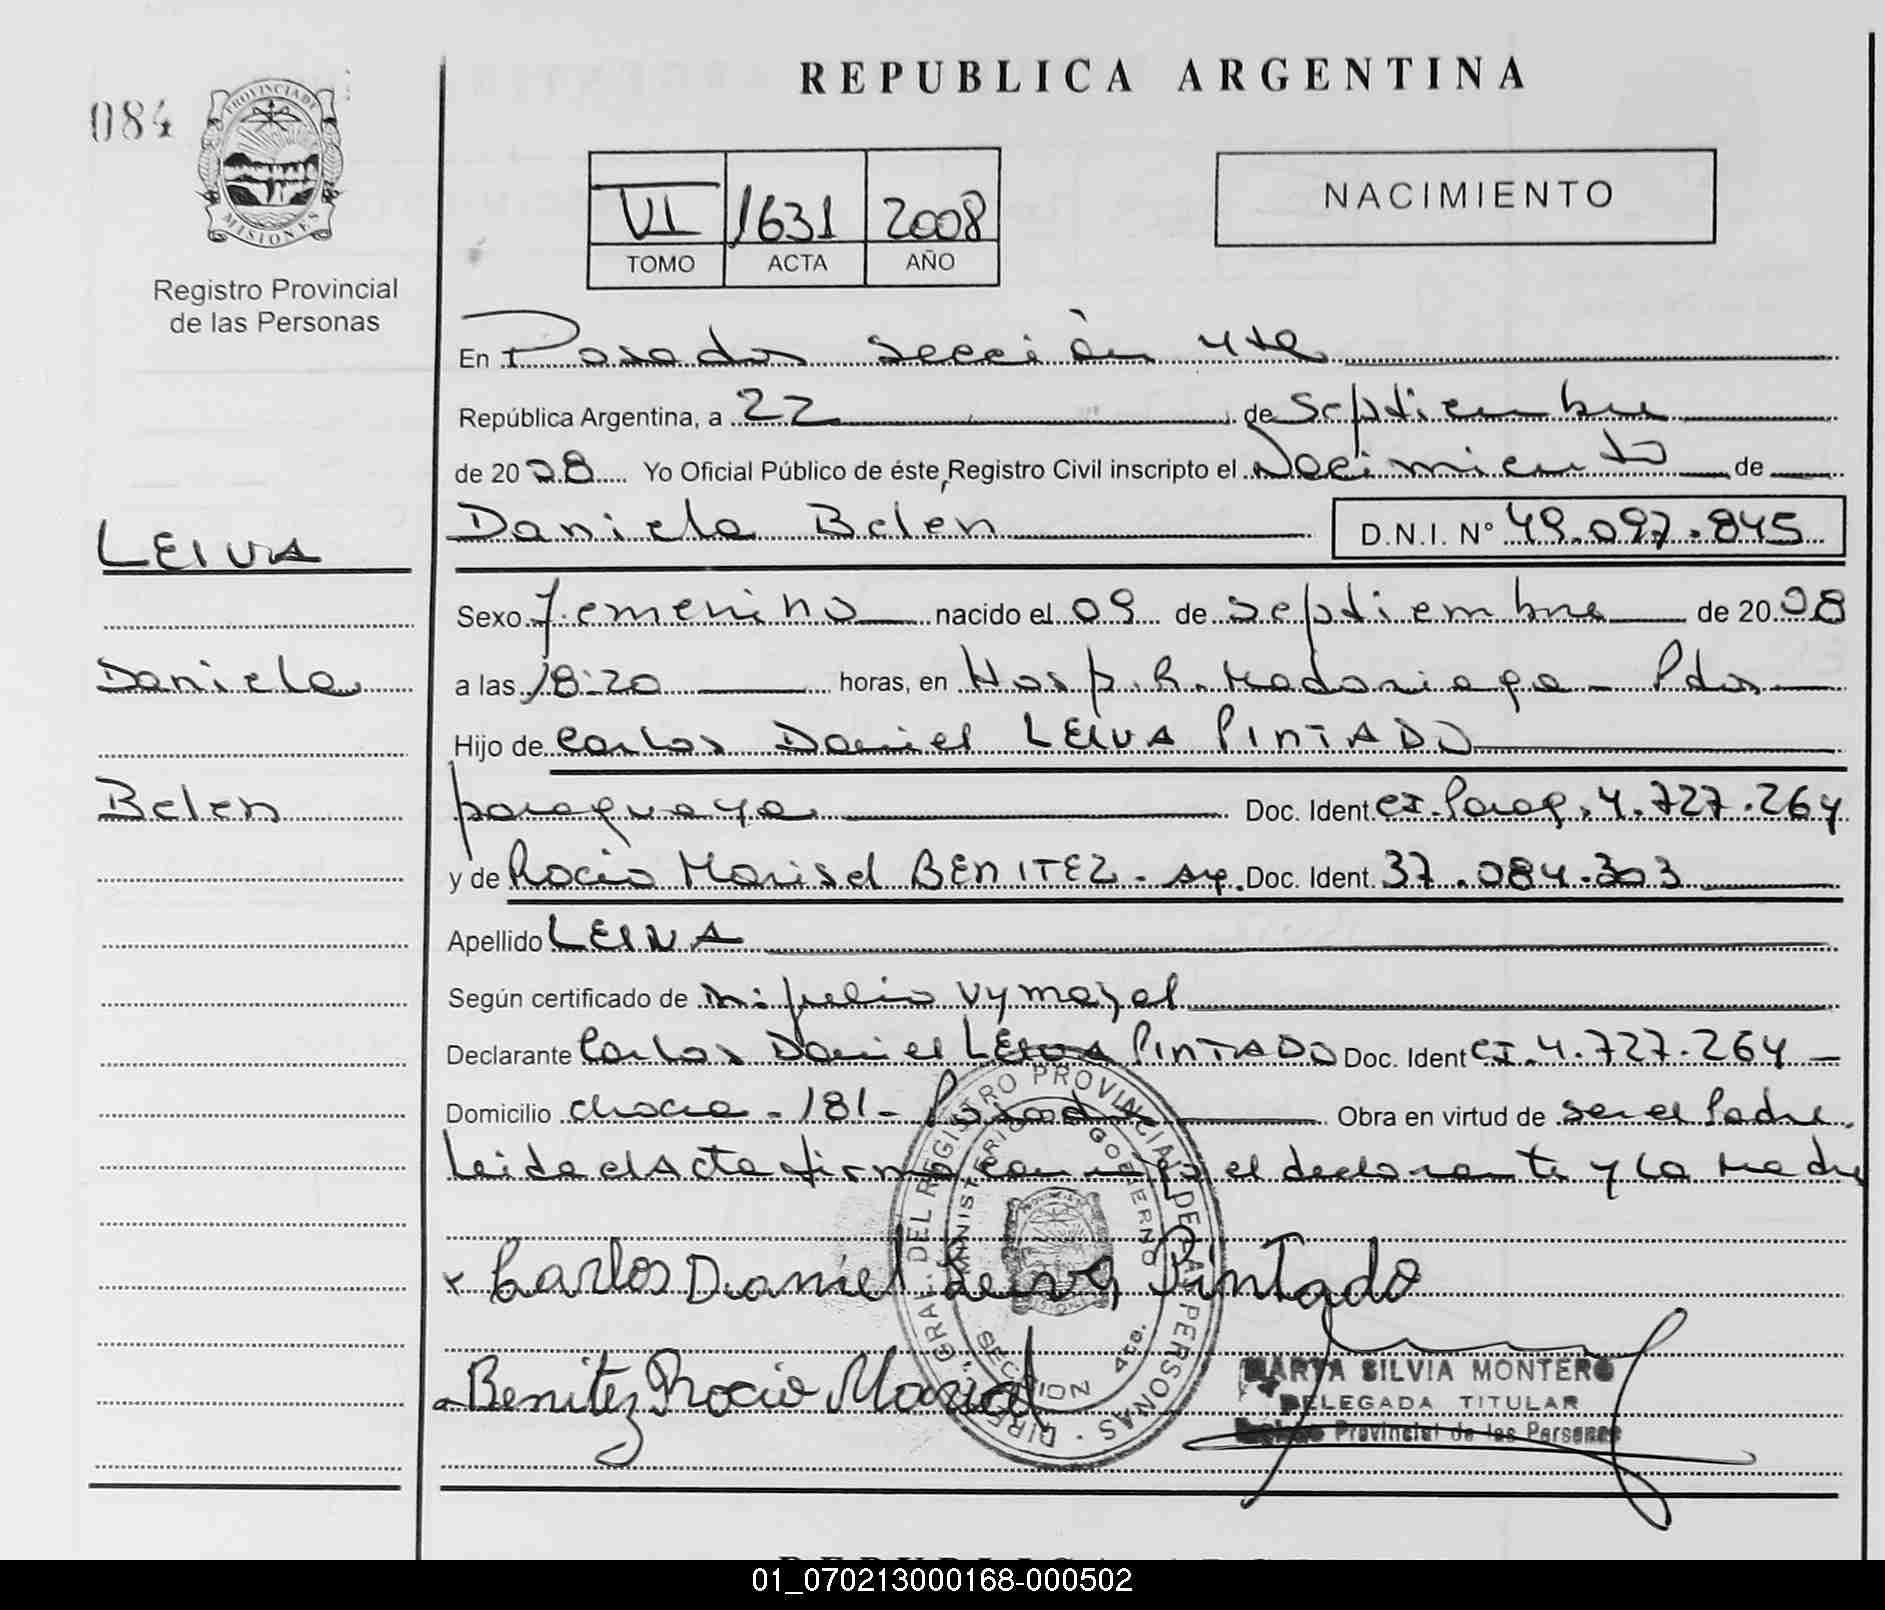 REPUBLICA ARGENTINA
084
PROVINCIA DE MISIONES
Registro Provincial
de las Personas
VI 1631 2008
TOMO ACTA AÑO
NACIMIENTO
En Posadas sección 4ta
República Argentina, a 22 de Septiembre
de 2008 Yo Oficial Público de éste Registro Civil inscripto el Nacimiento de
Daniela Belen D.N.I. Nº 49.097.845
LEIVA
Sexo femenino nacido el 09 de septiembre de 2008
Daniela
a las 18:20 horas, en Hosp. R. Madariaga - Pdas
Hijo de Carlos Daniel LEIVA PINTADO
Belen
paraguaya Doc. Ident. CI. Parag. 4.727.264
y de Rocio Marisel BENITEZ - ag. Doc. Ident. 37.084.303
Apellido LEIVA
Según certificado de Vymazal
Declarante Carlos Daniel LEIVA PINTADO Doc. Ident CI. 4.727.264
Domicilio chacra - 181 - Posadas Obra en virtud de ser el Padre.
Leida el Acta firma conmigo el declarante y la Madre
x Carlos Daniel Leiva Pintado
Benitez Rocio Marisel
DIREC. GRAL. DEL REGISTRO PROVINCIAL DE LAS PERSONAS
MINISTERIO DE GOBIERNO
SECCION 4ta.
MARTA SILVIA MONTERO
DELEGADA TITULAR
Provincial de las Personas
01_070213000168-000502